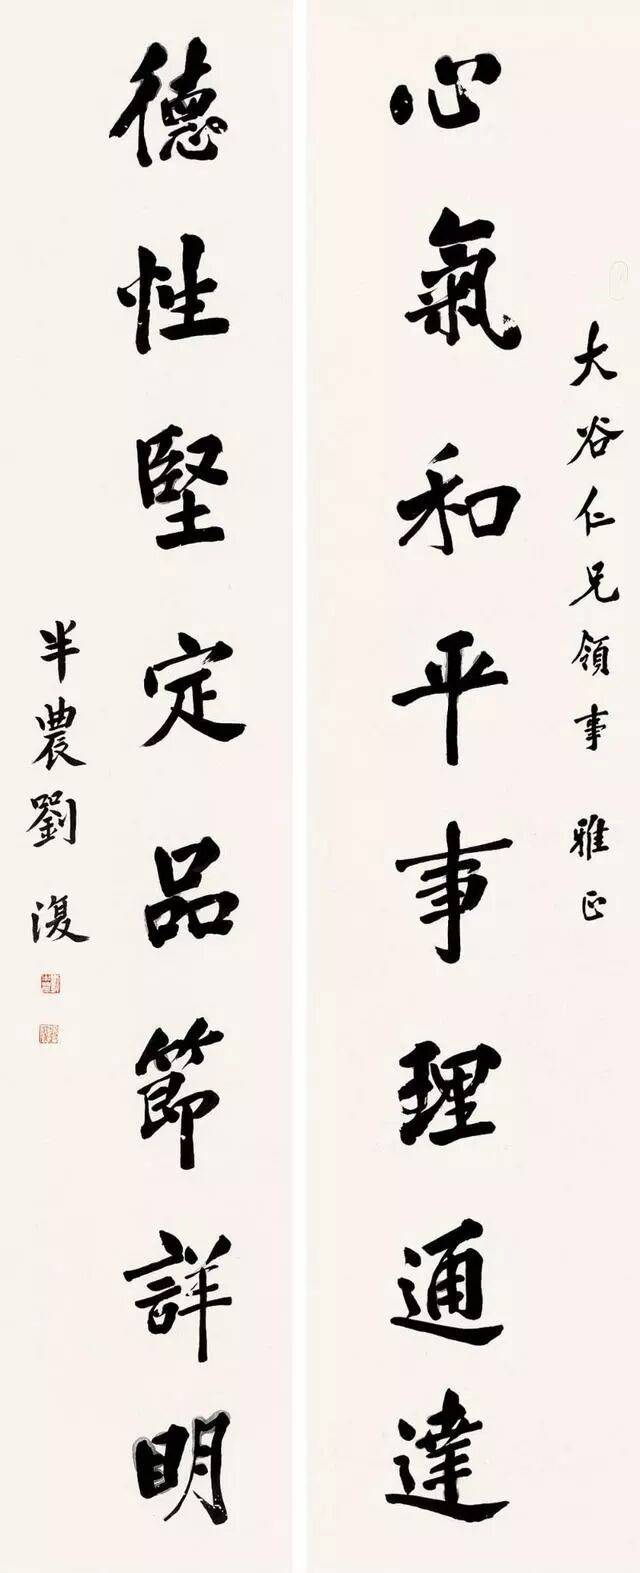 大谷仁兄領事 雅正
心氣和平事理通達
德性堅定品節詳明
半農劉復